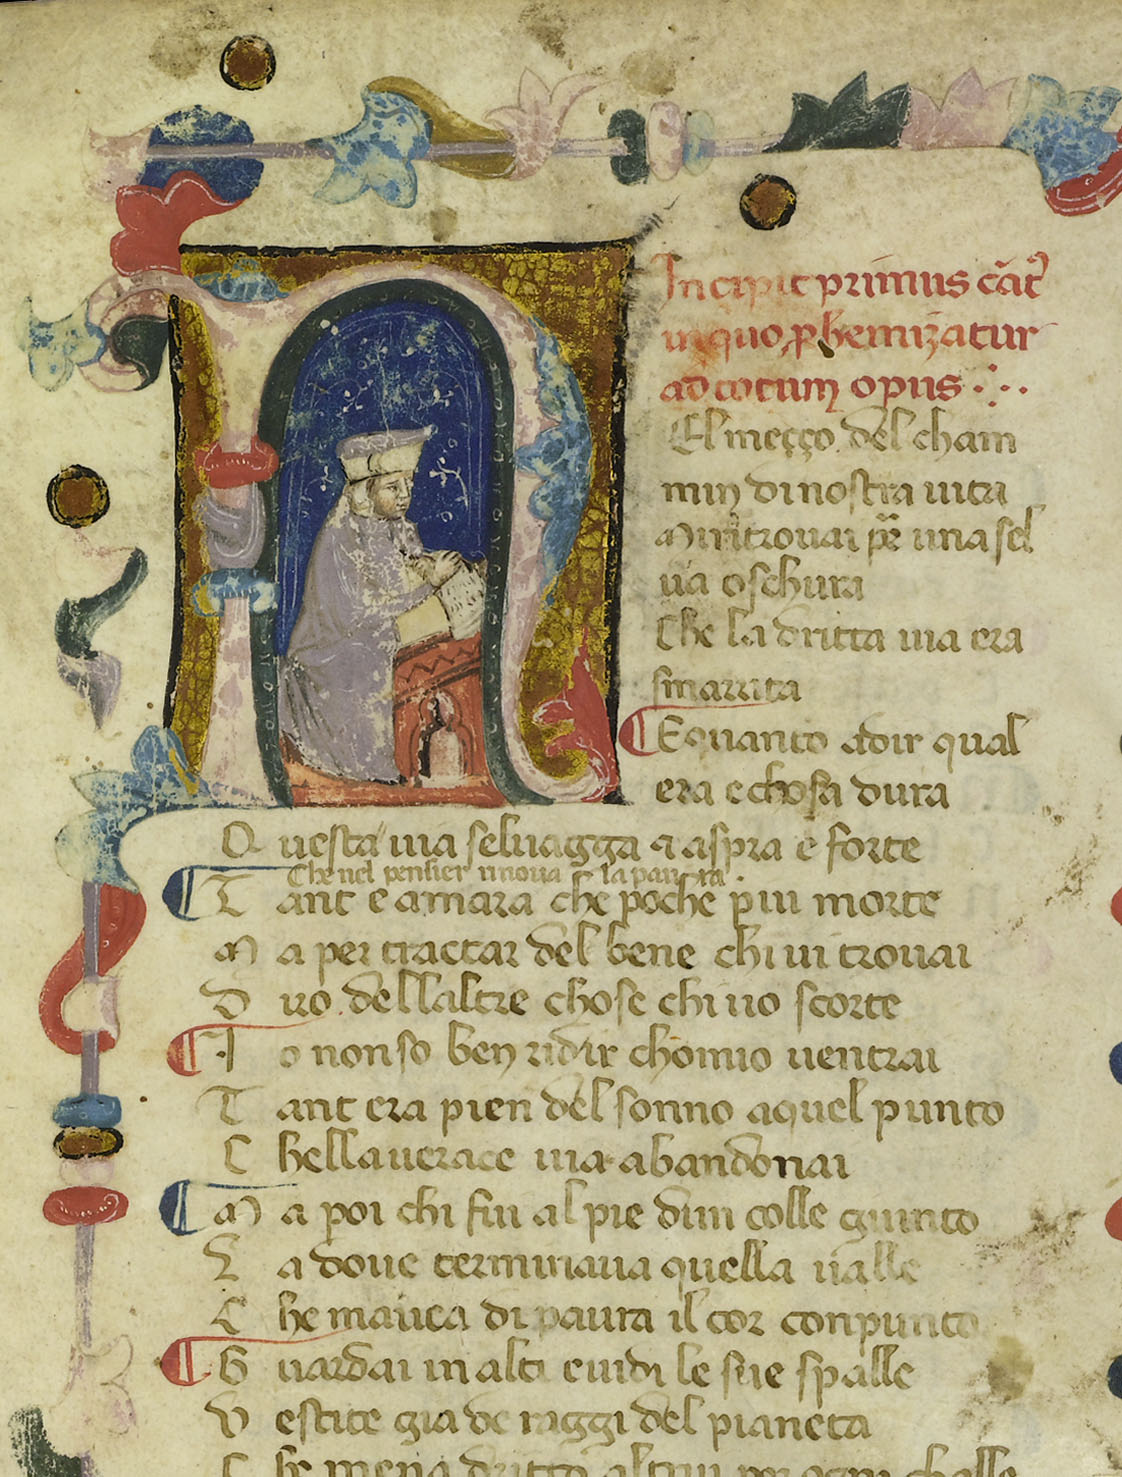 Incipit primus cāt᾽
in quo ꝓhemizatur
ad totum opus
El meçço del cham
min di nostra uita
Mi ritrouai per una sel
ua oschura
Che la dritta uia era
smarrita
E quanto a dir qual
era e chosa dura
Questa uia seluagga ⁊ aspra e forte
Che nel pensier rinoua la paura
Tant e amara che poche piu morte
Ma per tractar del bene chi ui trouai
Diro dellaltre chose chi uo scorte
Io non so ben ridir chomio uentrai
Tant era pien del sonno a quel punto
Chella uerace uia abandonai
Ma poi chi fui al pie dun colle guinto
La doue terminaua quella ualle
Che mauea di paura il cor conpunto
Guardai in alti e uidi le sue spalle
Vestite gia de raggi del pianeta
Che mena dritto altrui per ogni challe